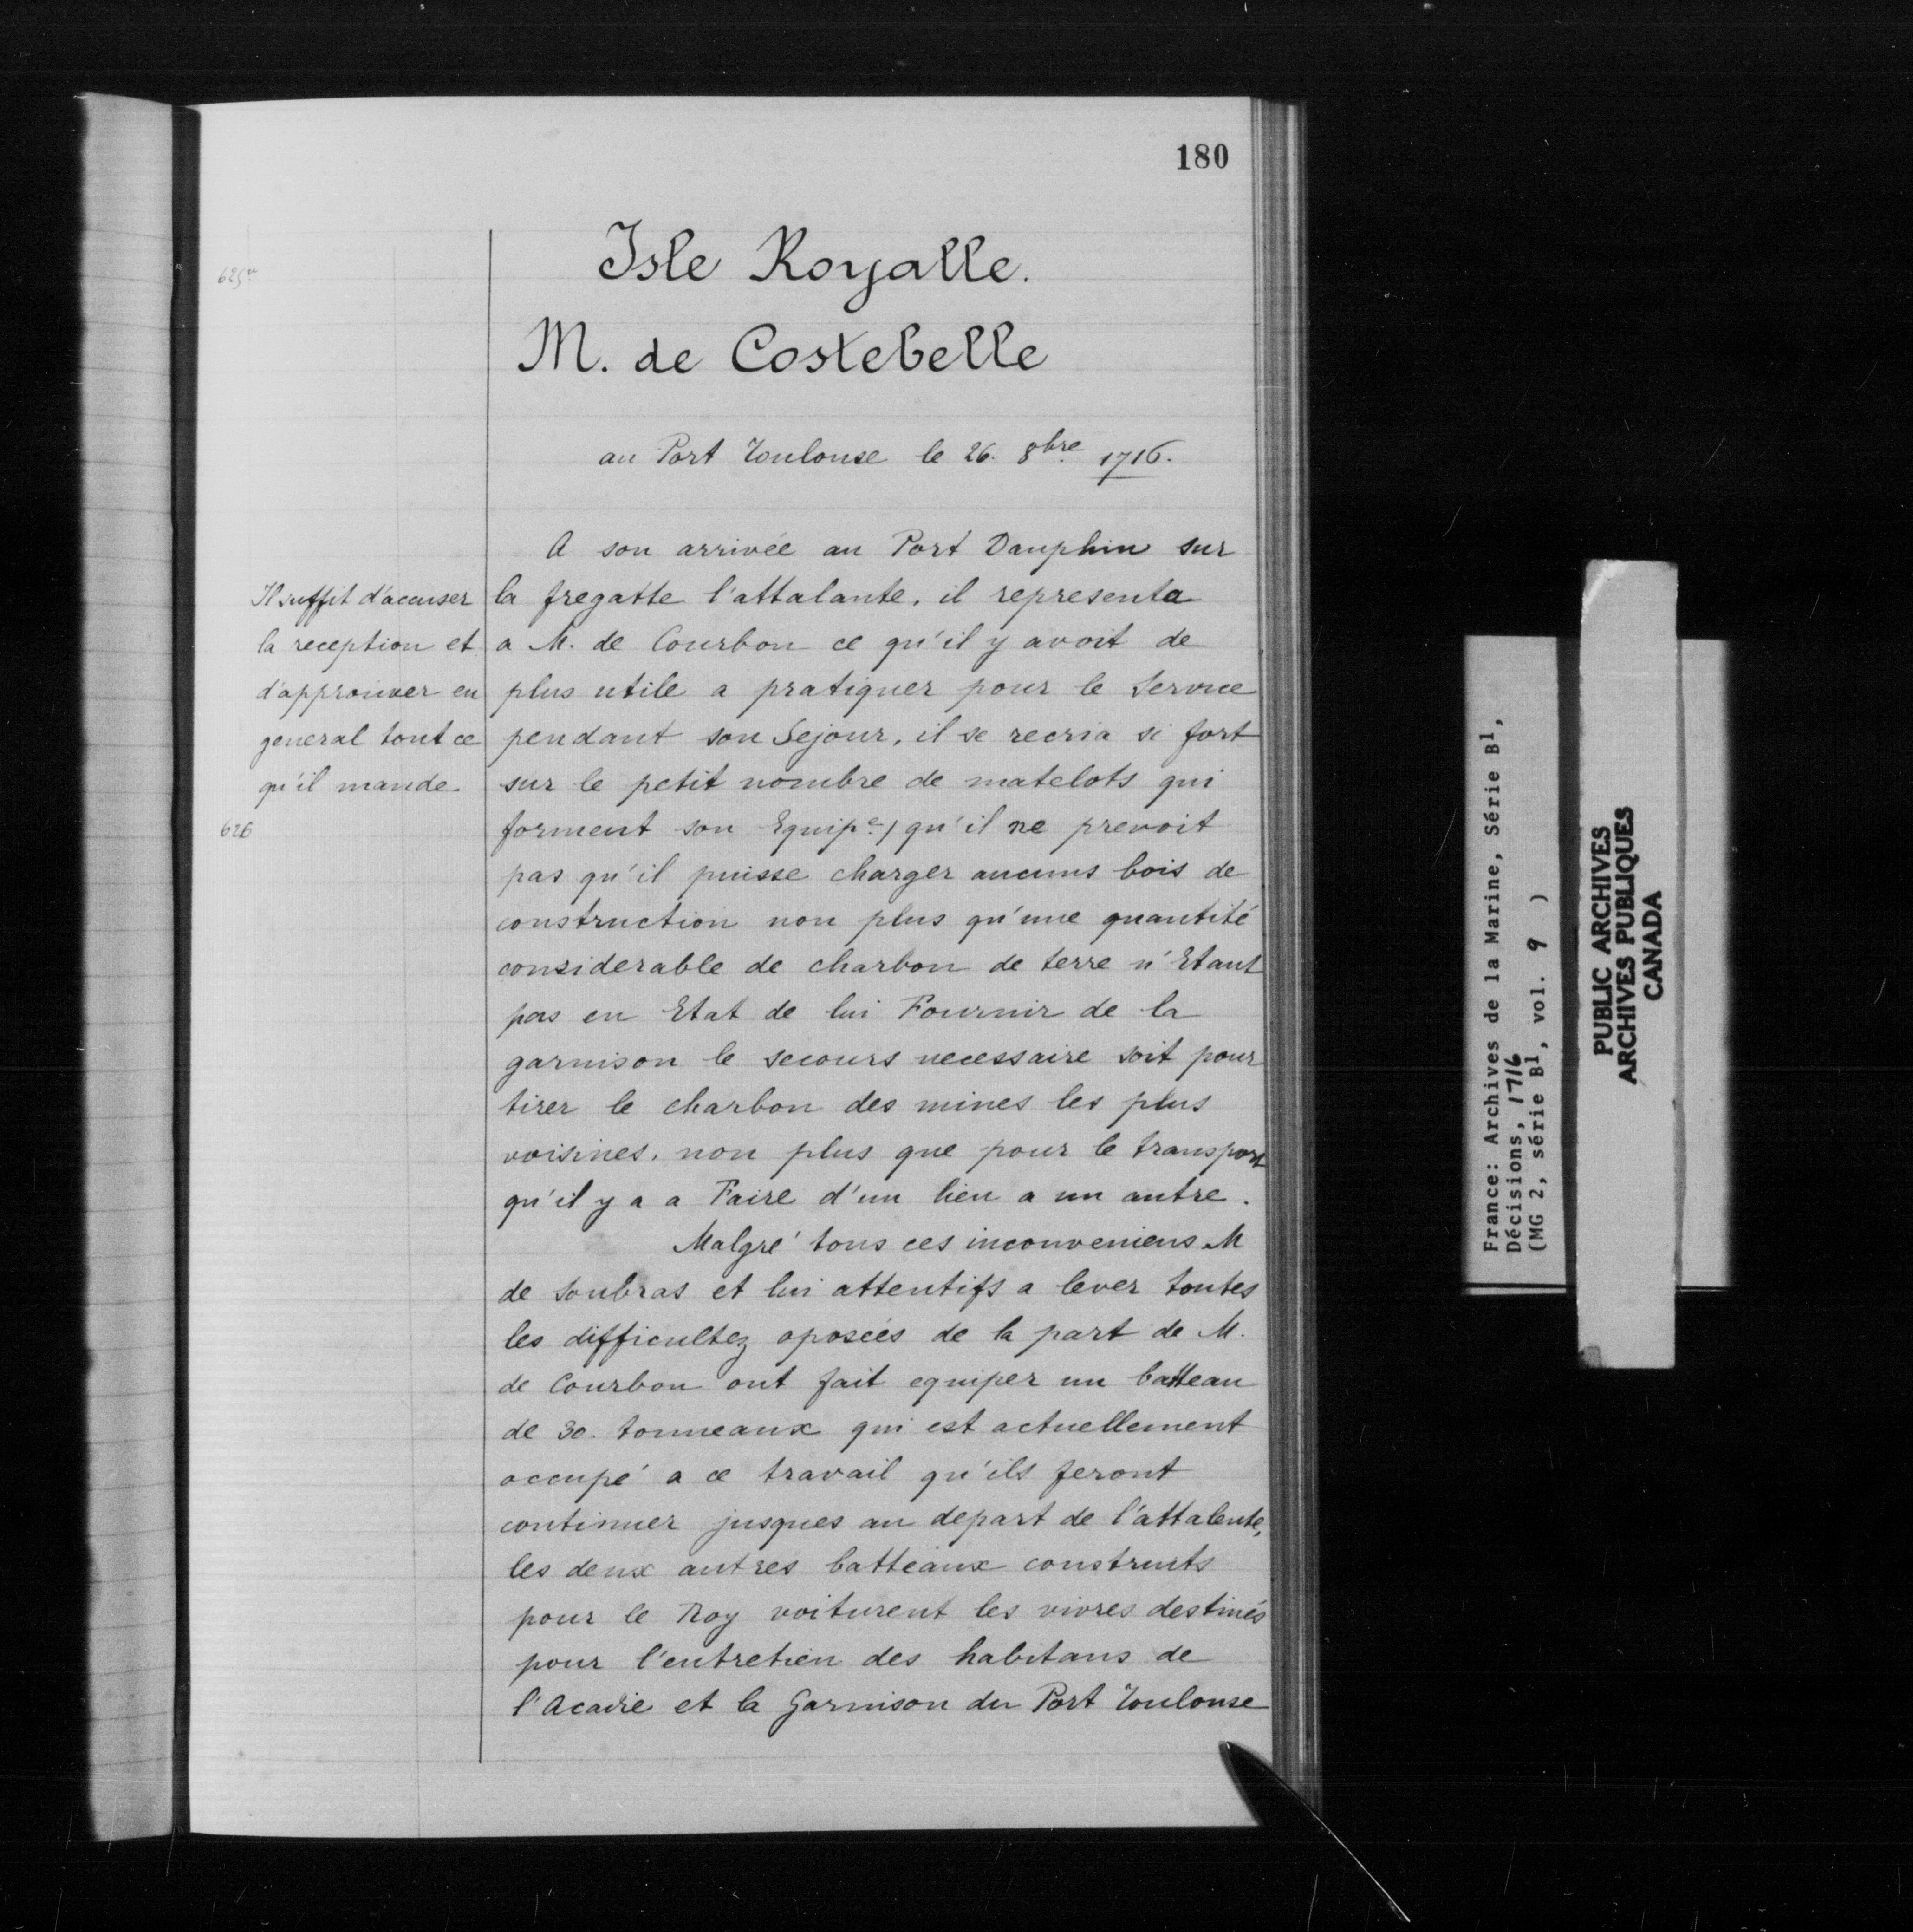 180
Isle Royalle.
M. de Costebelle
au Port Toulouse le 26. 8bre 1716.
625vo
Il suffit d'accuser
la reception et
d'approuver en
general tout ce
qu'il mande.
626
A son arrivée au Port Dauphin sur
la fregatte l'attalante, il representa
a M. de Courbon ce qu'il y avoit de
plus utile a pratiquer pour le Service
pendant son Sejour, il se recria si fort
sur le petit nombre de matelots qui
forment son Equipe.) qu'il ne prevoit
pas qu'il puisse charger aucuns bois de
construction non plus qu'une quantité
considerable de charbon de terre n'Etant
pas en Etat de lui Fournir de la
garnison le secours necessaire soit pour
tirer le charbon des mines les plus
voisines, non plus que pour le transport
qu'il y a a Faire d'un lieu a un autre.
Malgré tous ces inconveniens M
de Soubras et lui attentifs a lever toutes
les difficultez oposées de la part de M.
de Courbon ont fait equiper un batteau
de 30. tonneaux qui est actuellement
occupé a ce travail qu'ils feront
continuer jusques au depart de l'attalente,
les deux autres batteaux construits
pour le Roy voiturent les vivres destinés
pour l'entretien des habitans de
l'Acadie et la Garnison du Port Toulouse
France: Archives de la Marine, Série B1,
Décisions, 1716
(MG 2, série B1, vol. 9 )
PUBLIC ARCHIVES
ARCHIVES PUBLIQUES
CANADA